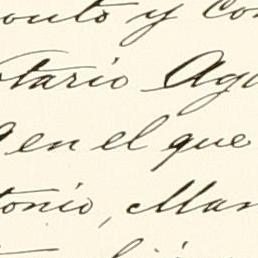 y con
tario Agu
en el que
tonio, Man